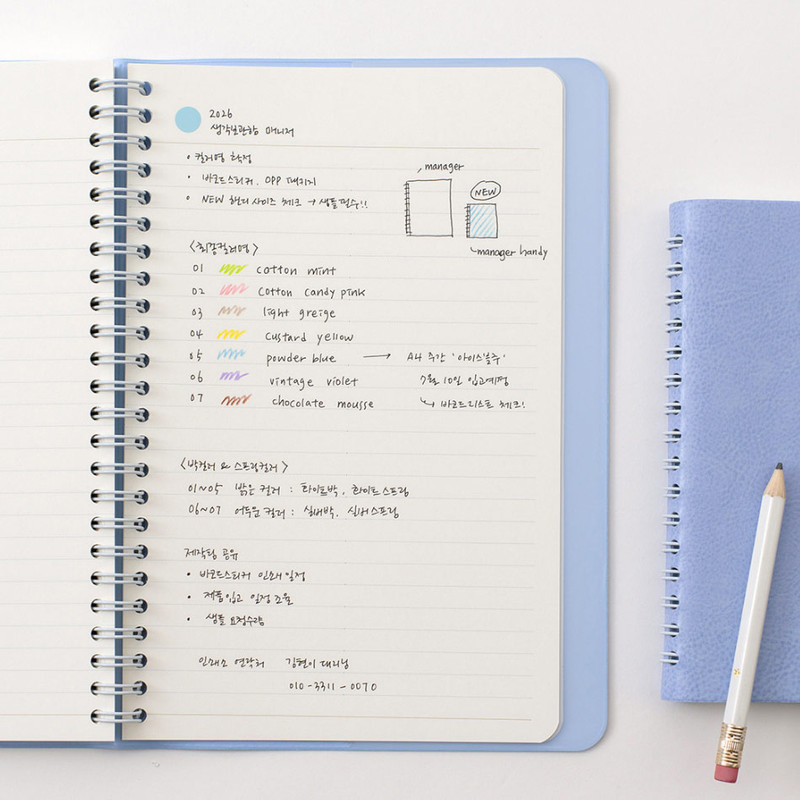 2026
생각보관함 매니저
• 컬러명 확정
• 바코드스티커, OPP 패키지
• NEW 핸디 사이즈 체크 → 샘플 필수!!
manager
NEW
manager handy
<최종컬러명>
01 cotton mint
02 cotton candy pink
03 light greige
04 custard yellow
05 powder blue → A4 주간 '아이스블루'
06 vintage violet 7월 10일 입고예정
07 chocolate mousse ↳ 바코드리스트 체크!
<박컬러 & 스프링컬러>
01~05 밝은 컬러 : 화이트박, 화이트스프링
06~07 어두운 컬러 : 실버박, 실버스프링
제작팀 공유
• 바코드스티커 인쇄 일정
• 제품입고 일정 조율
• 샘플 요청수량
인쇄소 연락처 김현이 대리님
010-3311-0070